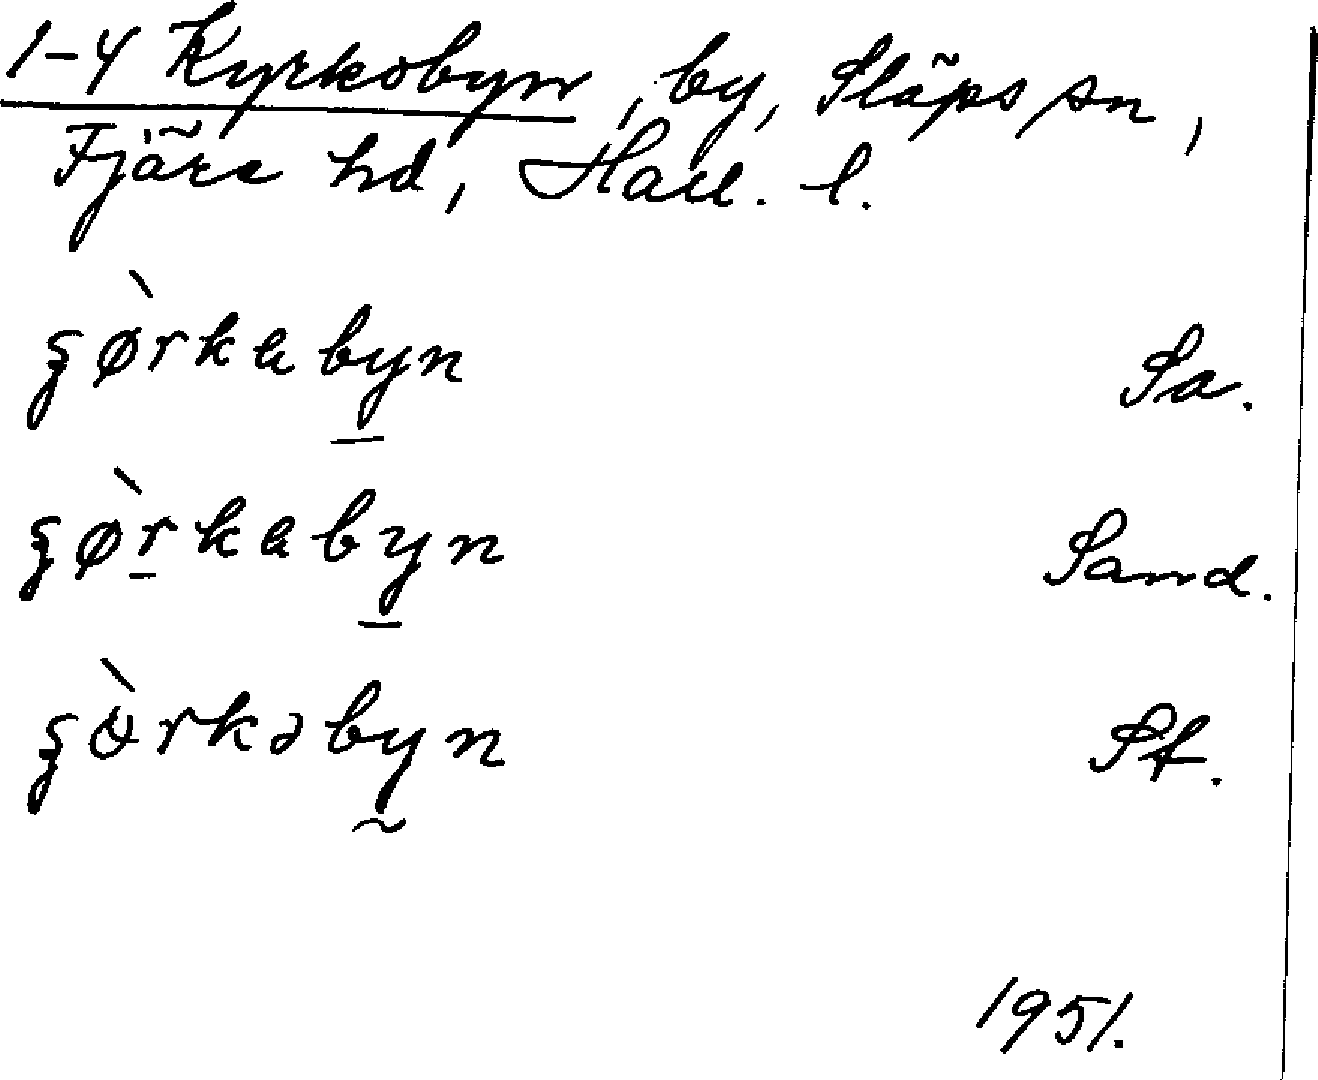 1-4 Kyrkobyn, by, Släps sn,
Fjäre hd, Hall. l.
ʂø̀rkabyn Sa.
ʂø̀rkabyn Sand.
ʂò̈rkəbyn St.
1951.